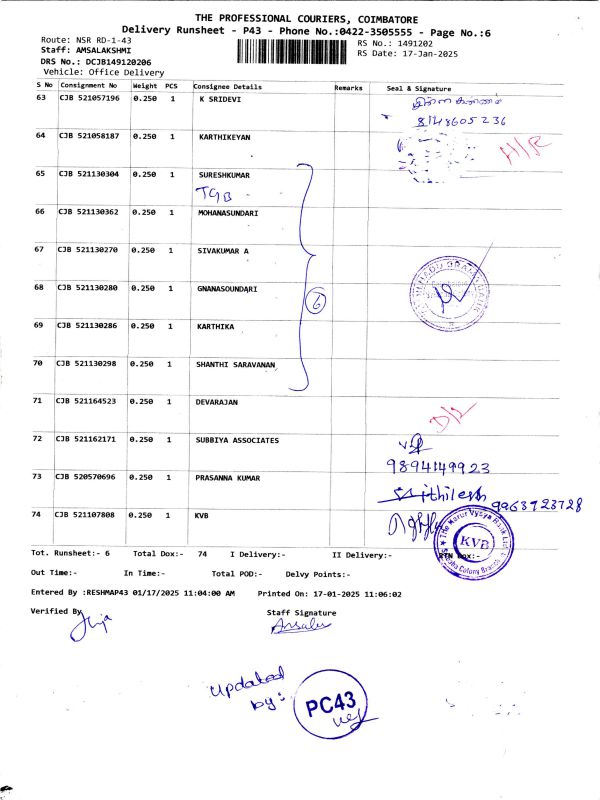 THE PROFESSIONAL COURIERS, COIMBATORE
Delivery Runsheet - P43 - Phone No.:0422-3505555 - Page No.:6
Route: NSR RD-1-43
RS No.: 1491202
Staff: AMSALAKSHMI
RS Date: 17-Jan-2025
DRS No.: DCJB149120206
Vehicle: Office Delivery
S No Consignment No Weight PCS Consignee Details Remarks Seal & Signature
63 CJB 521057196 0.250 1 K SRIDEVI
8148605236
64 CJB 521058187 0.250 1 KARTHIKEYAN
65 CJB 521130304 0.250 1 SURESHKUMAR
TGB
66 CJB 521130362 0.250 1 MOHANASUNDARI
67 CJB 521130270 0.250 1 SIVAKUMAR A
68 CJB 521130280 0.250 1 GNANASOUNDARI
6
69 CJB 521130286 0.250 1 KARTHIKA
70 CJB 521130298 0.250 1 SHANTHI SARAVANAN
71 CJB 521164523 0.250 1 DEVARAJAN
D/L
72 CJB 521162171 0.250 1 SUBBIYA ASSOCIATES
9894149923
73 CJB 520570696 0.250 1 PRASANNA KUMAR
Mithilesh 9963723728
74 CJB 521107808 0.250 1 KVB
The Karur Vysya Bank Ltd
KVB
Colony Branch
Tot. Runsheet:- 6 Total Dox:- 74 I Delivery:- II Delivery:- RTN Dox:-
Out Time:- In Time:- Total POD:- Delvy Points:-
Entered By :RESHMAP43 01/17/2025 11:04:00 AM Printed On: 17-01-2025 11:06:02
Verified By Staff Signature
Updated
by:
PC43